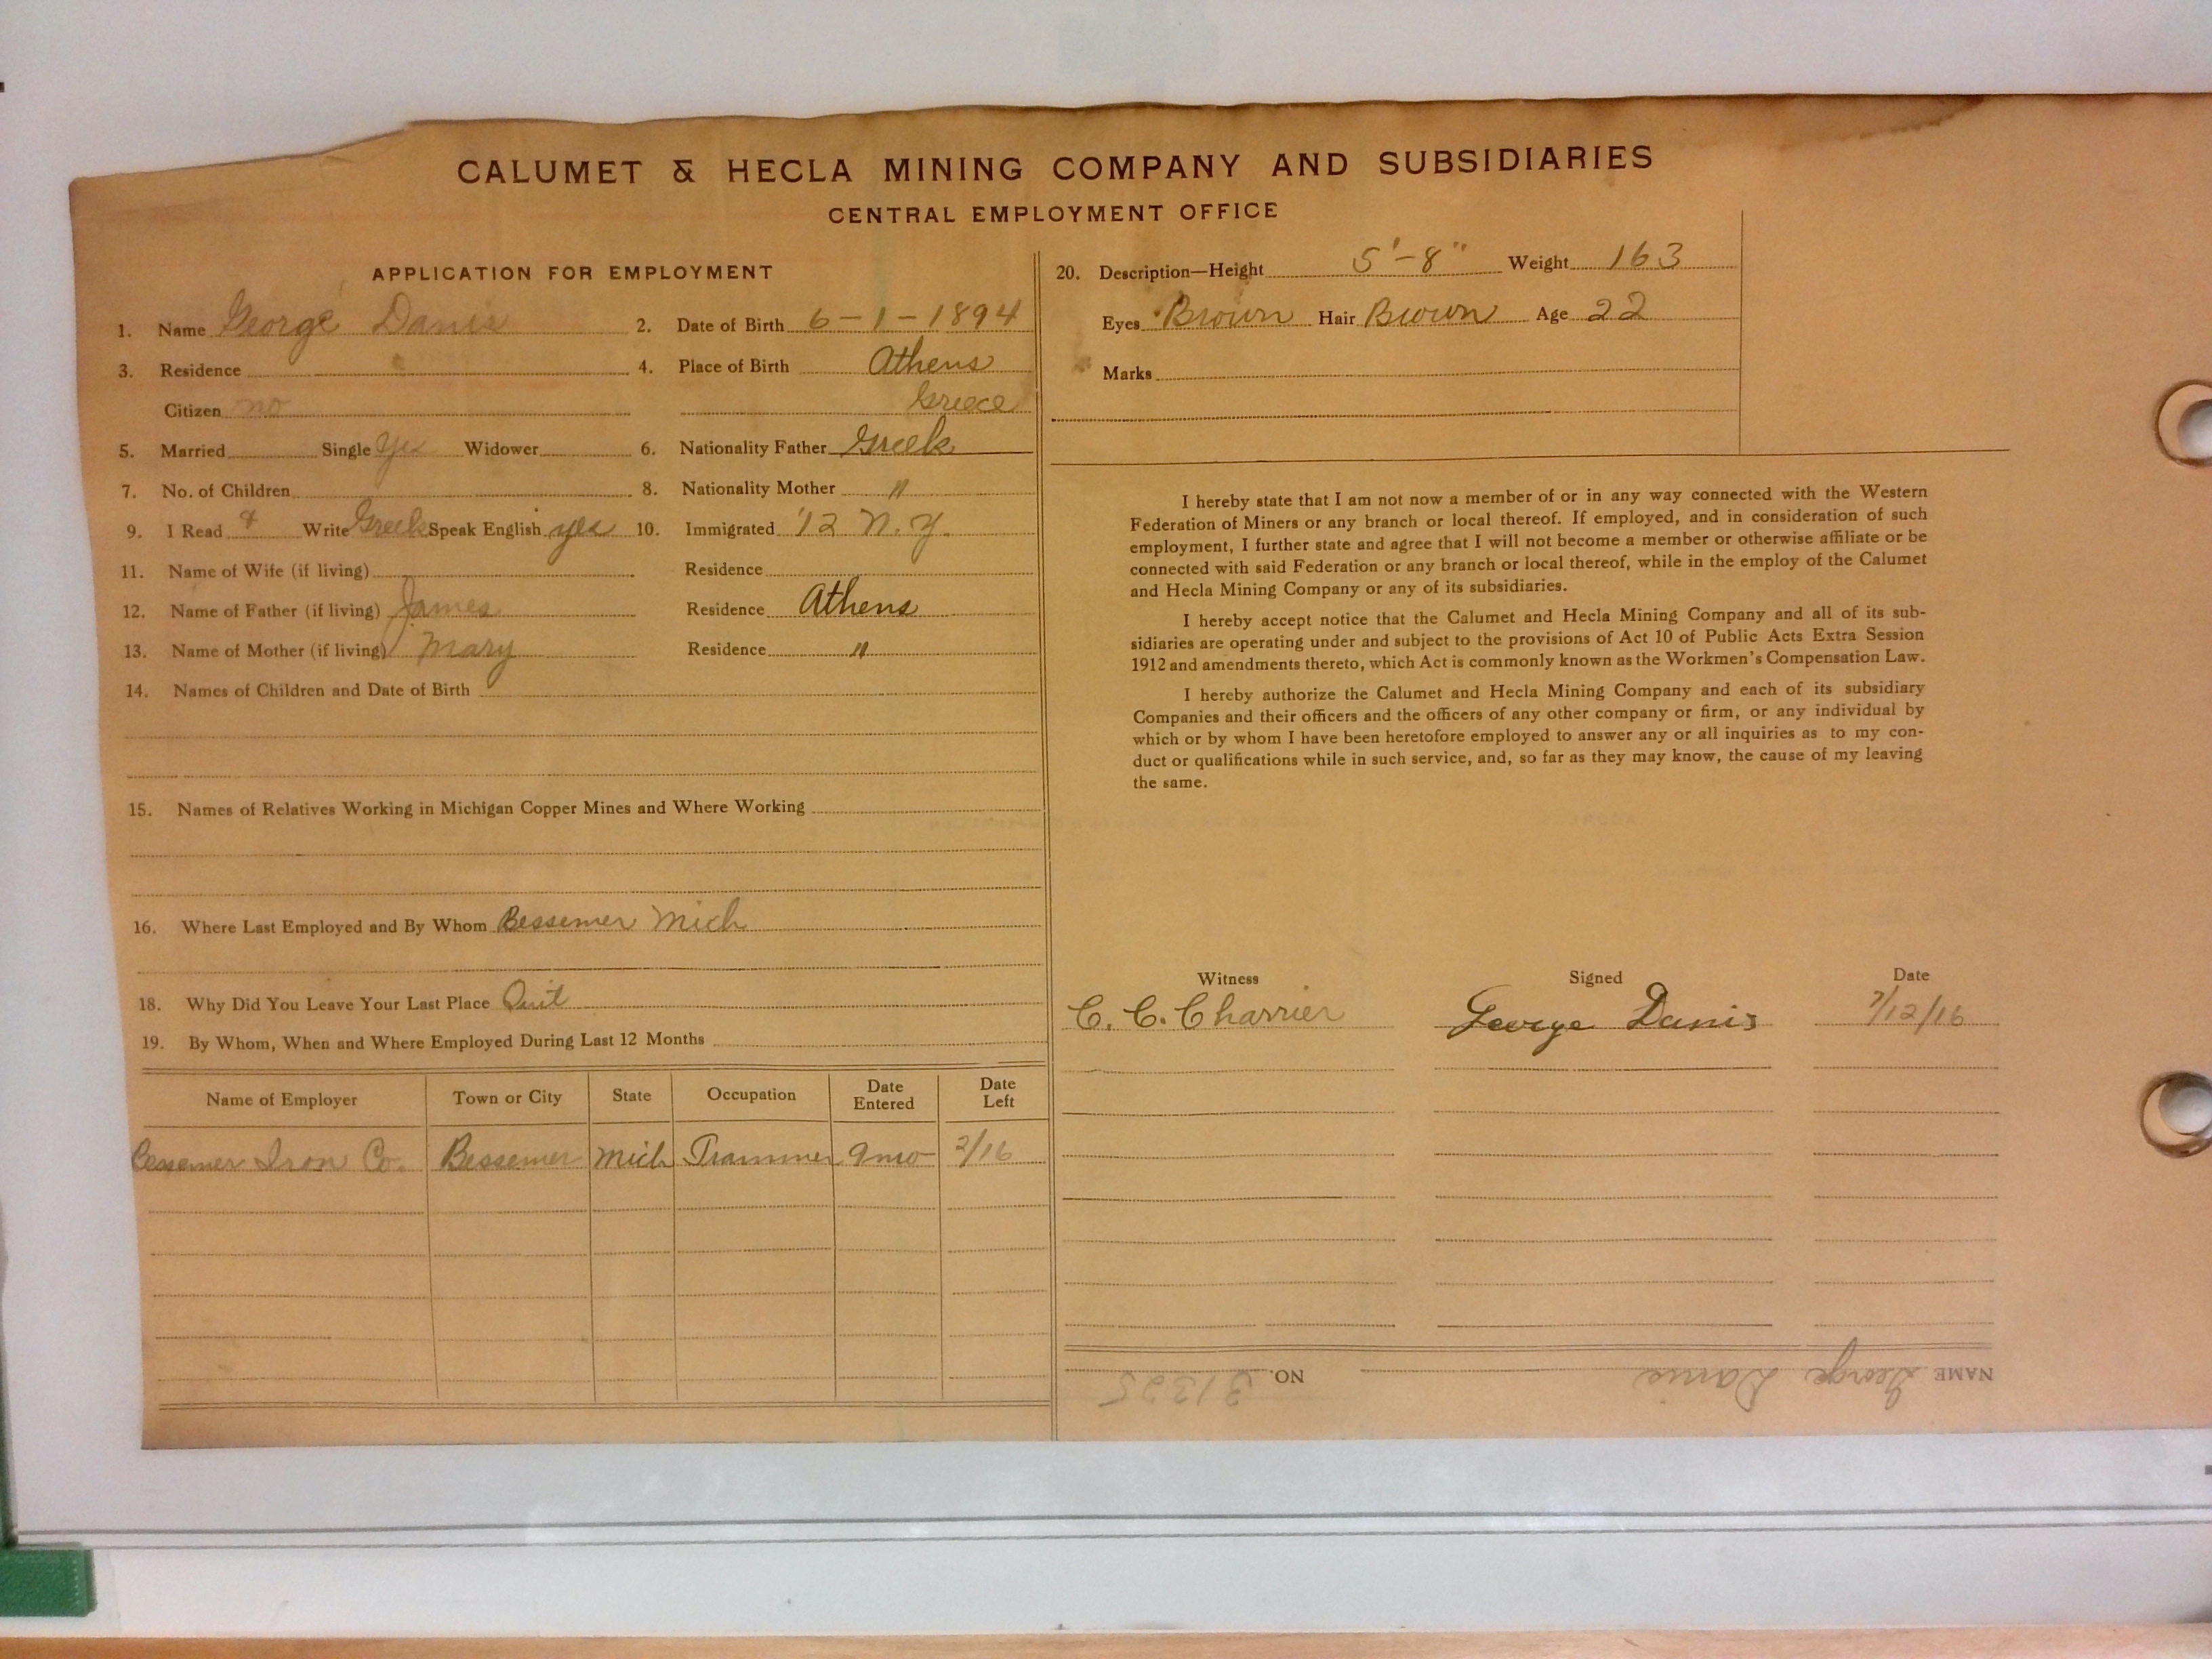 CALUMET & HECLA MINING COMPANY AND SUBSIDIARIES
CENTRAL EMPLOYMENT OFFICE
APPLICATION FOR EMPLOYMENT
1. Name George Danis 2. Date of Birth 6-1-1894
3. Residence 4. Place of Birth Athens
Citizen no Greece
5. Married Single Yes Widower 6. Nationality Father Greek
7. No. of Children 8. Nationality Mother "
9. I Read & Write Greek Speak English yes 10. Immigrated '12 N.Y.
11. Name of Wife (if living) Residence
12. Name of Father (if living) James Residence Athens
13. Name of Mother (if living) Mary Residence "
14. Names of Children and Date of Birth
15. Names of Relatives Working in Michigan Copper Mines and Where Working
16. Where Last Employed and By Whom Bessemer Mich
18. Why Did You Leave Your Last Place Quit
19. By Whom, When and Where Employed During Last 12 Months
Name of Employer Town or City State Occupation Date Entered Date Left
Bessemer Iron Co. Bessemer Mich Trammer 9mo 2/16
20. Description—Height 5'-8" Weight 163
Eyes Brown Hair Brown Age 22
Marks
I hereby state that I am not now a member of or in any way connected with the Western
Federation of Miners or any branch or local thereof. If employed, and in consideration of such
employment, I further state and agree that I will not become a member or otherwise affiliate or be
connected with said Federation or any branch or local thereof, while in the employ of the Calumet
and Hecla Mining Company or any of its subsidiaries.
I hereby accept notice that the Calumet and Hecla Mining Company and all of its sub-
sidiaries are operating under and subject to the provisions of Act 10 of Public Acts Extra Session
1912 and amendments thereto, which Act is commonly known as the Workmen's Compensation Law.
I hereby authorize the Calumet and Hecla Mining Company and each of its subsidiary
Companies and their officers and the officers of any other company or firm, or any individual by
which or by whom I have been heretofore employed to answer any or all inquiries as to my con-
duct or qualifications while in such service, and, so far as they may know, the cause of my leaving
the same.
Witness Signed Date
C. C. Charrier George Danis 7/12/16
NAME George Danis NO. 31325